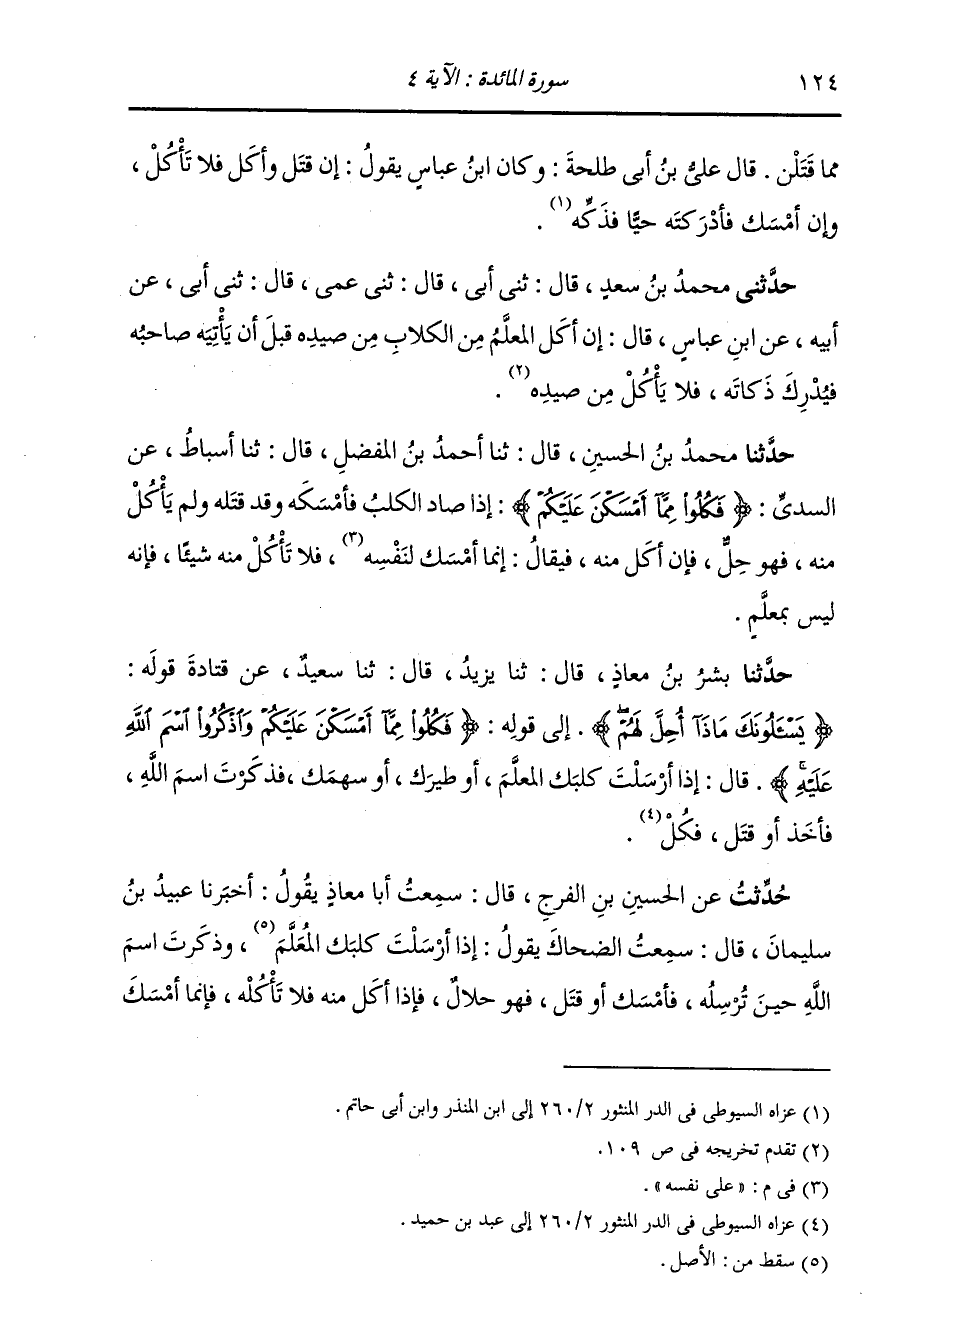 ١٢٤ سورة المائدة : الآية ٤
مما قَتَلْن . قال علىُّ بنُ أبى طلحةَ : وكان ابنُ عباسٍ يقولُ : إن قتَل وأكَل فلا تَأْكُلْ ،
وإن أمْسَك فأدْرَكتَه حيًّا فذَكِّه(١) .
حدَّثنى محمدُ بنُ سعدٍ ، قال : ثنى أبى ، قال : ثنى عمى ، قال : ثنى أبى ، عن
أبيه ، عن ابنِ عباسٍ ، قال : إن أكَل المعلَّمُ مِن الكلابِ مِن صيدِه قبلَ أن يَأْتِيَه صاحبُه
فيُدْرِكَ ذَكاتَه ، فلا يَأْكُلْ مِن صيدِه(٢) .
حدَّثنا محمدُ بنُ الحسينِ ، قال : ثنا أحمدُ بنُ المفضلِ ، قال : ثنا أسباطُ ، عن
السدىِّ : ﴿ فَكُلُوا۟ مِمَّآ أَمْسَكْنَ عَلَيْكُمْ ﴾ : إذا صاد الكلبُ فأمْسَكَه وقد قتَله ولم يَأْكُلْ
منه ، فهو حِلٌّ ، فإن أكَل منه ، فيقالُ : إنما أمْسَك لنَفْسِه(٣) ، فلا تَأْكُلْ منه شيئًا ، فإنه
ليس بمعلَّمٍ .
حدَّثنا بشرُ بنُ معاذٍ ، قال : ثنا يزيدُ ، قال : ثنا سعيدٌ ، عن قتادةَ قولَه :
﴿ يَسْـَٔلُونَكَ مَاذَآ أُحِلَّ لَهُمْ ۖ ﴾ . إلى قولِه : ﴿ فَكُلُوا۟ مِمَّآ أَمْسَكْنَ عَلَيْكُمْ وَٱذْكُرُوا۟ ٱسْمَ ٱللَّهِ
عَلَيْهِ ۚ ﴾ . قال : إذا أرْسَلْتَ كلبَك المعلَّمَ ، أو طيرَك ، أو سهمَك ،فذكَرْتَ اسمَ اللَّهِ ،
فأخَذ أو قتَل ، فكُلْ(٤) .
حُدِّثتُ عن الحسينِ بنِ الفرجِ ، قال : سمِعتُ أبا معاذٍ يقُولُ : أخبَرنا عبيدُ بنُ
سليمانَ ، قال : سمِعتُ الضحاكَ يقولُ : إذا أرْسَلْتَ كلبَك المُعَلَّمَ(٥) ، وذكَرتَ اسمَ
اللَّهِ حينَ تُرْسِلُه ، فأمْسَك أو قتَل ، فهو حلالٌ ، فإذا أكَل منه فلا تَأْكُلْه ، فإنما أمْسَكَ
(١) عزاه السيوطى فى الدر المنثور ٢٦٠/٢ إلى ابن المنذر وابن أبى حاتم .
(٢) تقدم تخريجه فى ص ١٠٩.
(٣) فى م : « على نفسه » .
(٤) عزاه السيوطى فى الدر المنثور ٢٦٠/٢ إلى عبد بن حميد .
(٥) سقط من : الأصل .